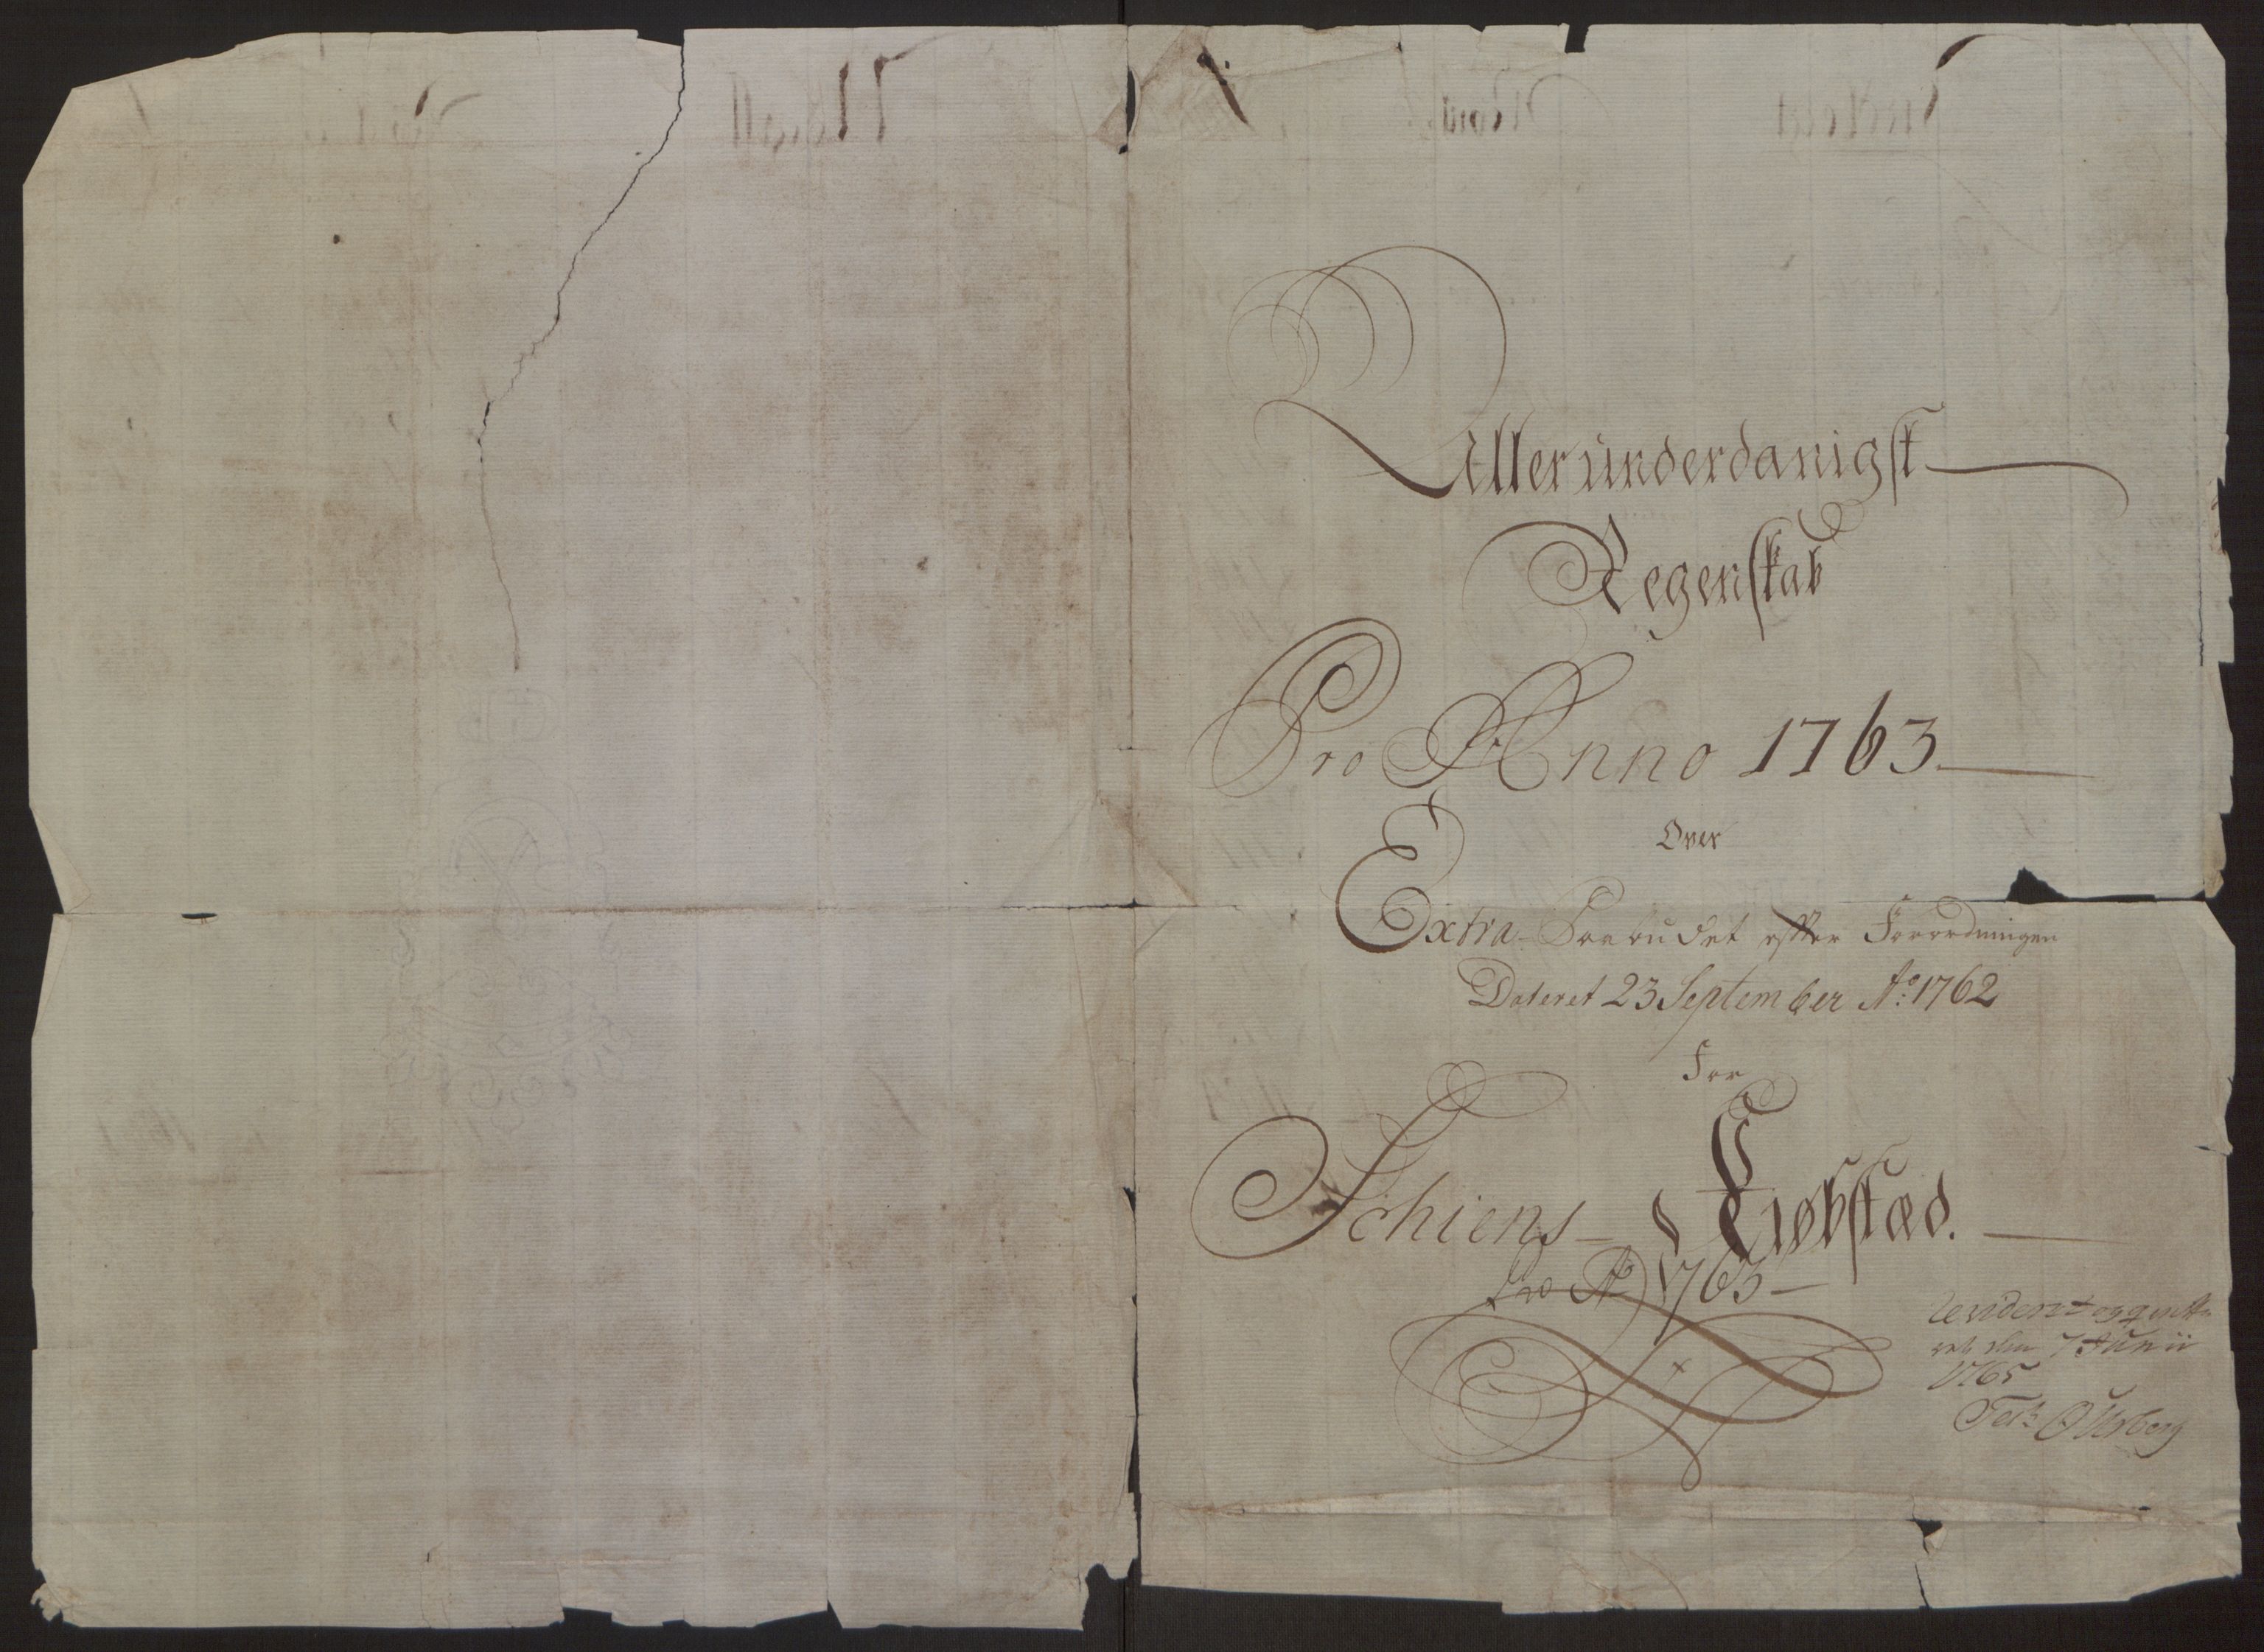 Alleründerdanigst
Regenskab
Pro Anno 1763
Over
Extra-Paabudet efter Forordningen
Dateret 23 September Ao: 1762
For
Schiens Kiøbstæd.
Pro Ao 1763
den 7 Junii
1765